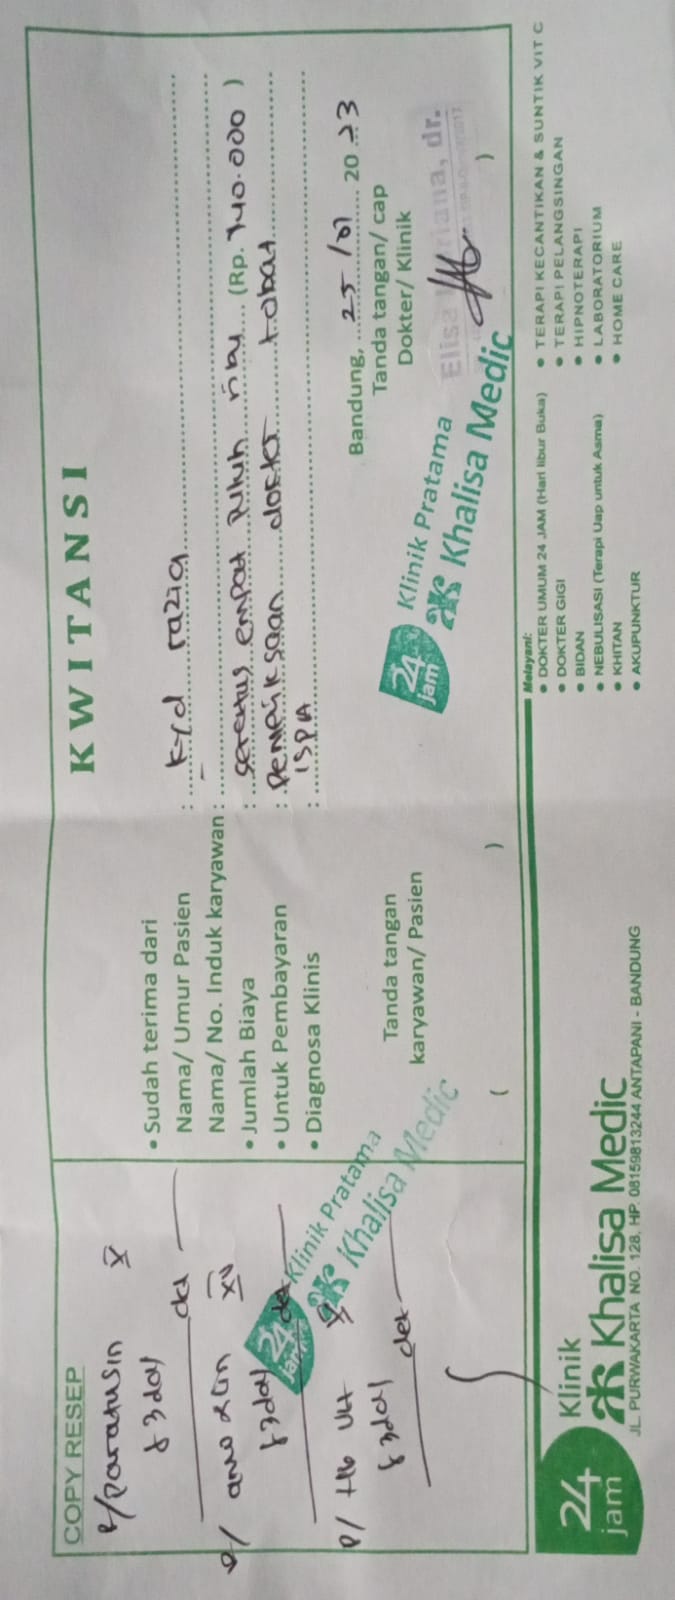 COPY RESEP
R/ paratusin X
ʃ 3 dd 1
det
R/ amoxlin XV
ʃ 3 dd 1
det
R/
ʃ 3 dd 1
det
24 jam Klinik Pratama
Khalisa Medic
KWITANSI
• Sudah terima dari
Nama/ Umur Pasien : kyd razia
Nama/ No. Induk karyawan : -
• Jumlah Biaya : seratus empat puluh ribu (Rp. 140.000)
• Untuk Pembayaran : Pemeriksaan dokter + obat
• Diagnosa Klinis : ISPA
Bandung, 25/01 20 23
Tanda tangan
karyawan/ Pasien
Tanda tangan/ cap
Dokter/ Klinik
( )
)
24 jam Klinik Pratama
Khalisa Medic
Elisa dr.
24 jam Klinik
Khalisa Medic
JL. PURWAKARTA NO. 128, HP. 08159813244 ANTAPANI - BANDUNG
Melayani:
• DOKTER UMUM 24 JAM (Hari libur Buka)
• DOKTER GIGI
• BIDAN
• NEBULISASI (Terapi Uap untuk Asma)
• KHITAN
• AKUPUNKTUR
• TERAPI KECANTIKAN & SUNTIK VIT C
• TERAPI PELANGSINGAN
• HIPNOTERAPI
• LABORATORIUM
• HOME CARE